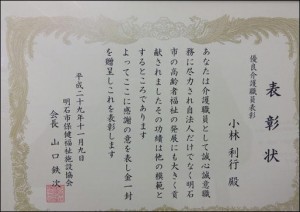 表彰状
優良介護職員表彰
小林利行 殿
あなたは介護職員として誠心誠意職
務に尽力され自法人だけでなく明石
市の高齢者福祉の発展にも大きく貢
献されましたその功績は他の模範と
するところであります
よってここに感謝の意を表し金一封
を贈呈しこれを表彰します
平成二十九年十一月九日
明石市保健福祉施設協会
会長 山口鉄次